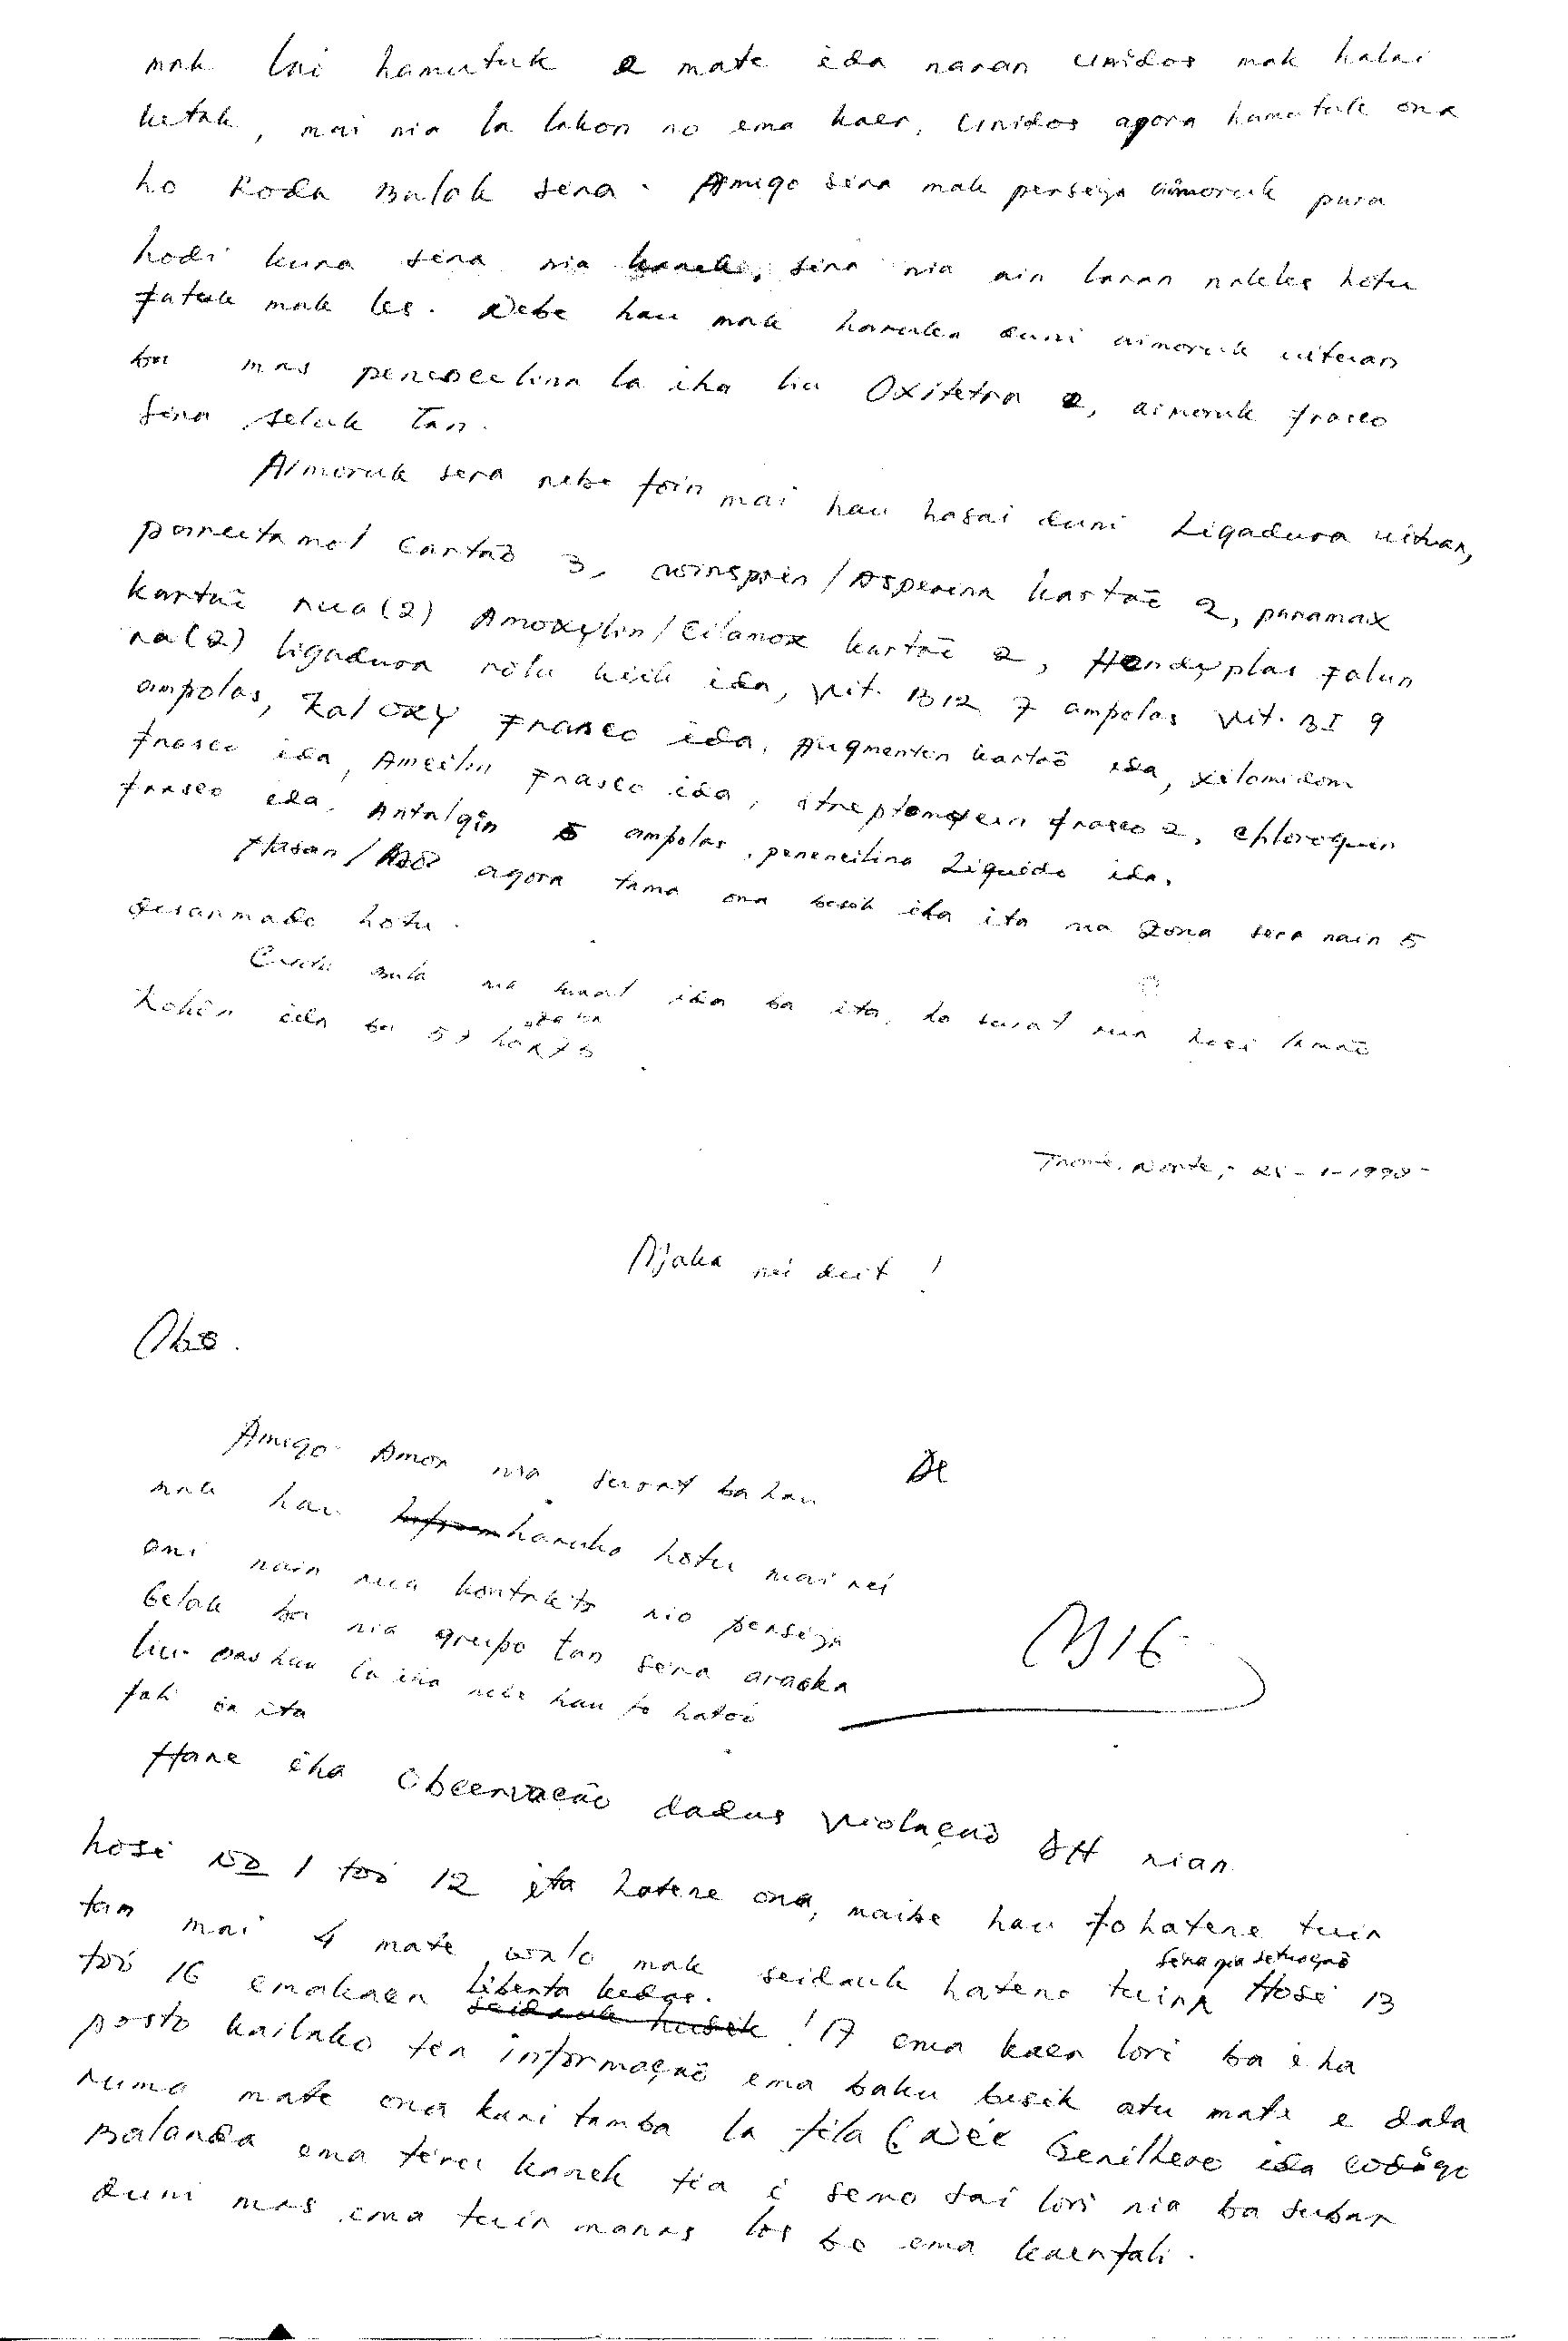 mak lai hamutuk e mate ida naran Unidos mak halai
ketak, mai nia la lakon no ema kaer, Unidos agora hamutuk ona
ho Roda Bulak sera. Amigo sera mak perseija aimoruk pura
hodi kura sera nia kanek, sera nia ain laran nakles hotu
fatuk mak les. Nebe hau mak haruka duni aimoruk uituan
ba mas peneocelina la iha liu Oxitetra 2, aimoruk frasco
sera seluk tan.
Aimoruk sera nebe foin mai hau hasai duni Ligadura uituan,
parecitamol Cartaõ 3, winsprin/Asperina kartaõ 2, paramax
kartaõ rua(2) Amoxylin/Cilamox kartaõ 2, Handyplas falun
rua(2) ligadura rolu kiik ida, vit. B12 7 ampolas vit. BI 9
ampolas, Kaloxy Frasco ida, Augmenten kartaõ ida, xilomidom
frasco ida, Amcilin frasco ida, streptomycin frasco 2, Chloroquin
frasco ida. Antalgin 5 ampolas, penencilina Liquido ida.
Hasan/ agora tama ona besik iha ita na Zona sera nain 5
desarmado hotu.
Bula nia surat ida ba ita, ho surat rua hosi
ida ba 57
Norte, 25-1-1998-
nei deit !
Obs.
Amigo Amor nia surat ba hau De
mak hau haruka hotu mai nei
ami nain rua kontakto nio perseija
belak ba nia grupo tan sera araska
liu. hau la iha nebe hau fo hatoo
fali ba ita
M16
Hare iha Observacão dadus Violaçaõ DH nian
hosi No 1 too 12 ita hatene ona, maibe hau fo hatene tuir
tan mai 4 mate walo mak seidauk hatene tuir sera nia setuaçaõ Hosi 13
too 16 emakaer liberta kedas. seidauk husik ! 17 ema kaer lori ba iha
posto kailako ter informaçaõ ema baku besik atu mate e dala
ruma mate ona kari tamba la fila (Neé Genilhero ida codigo
Balanda ema tiru kanek tia i semo sai lori nia ba subar
duni mas ema tuir manas los bo ema kaer fali.